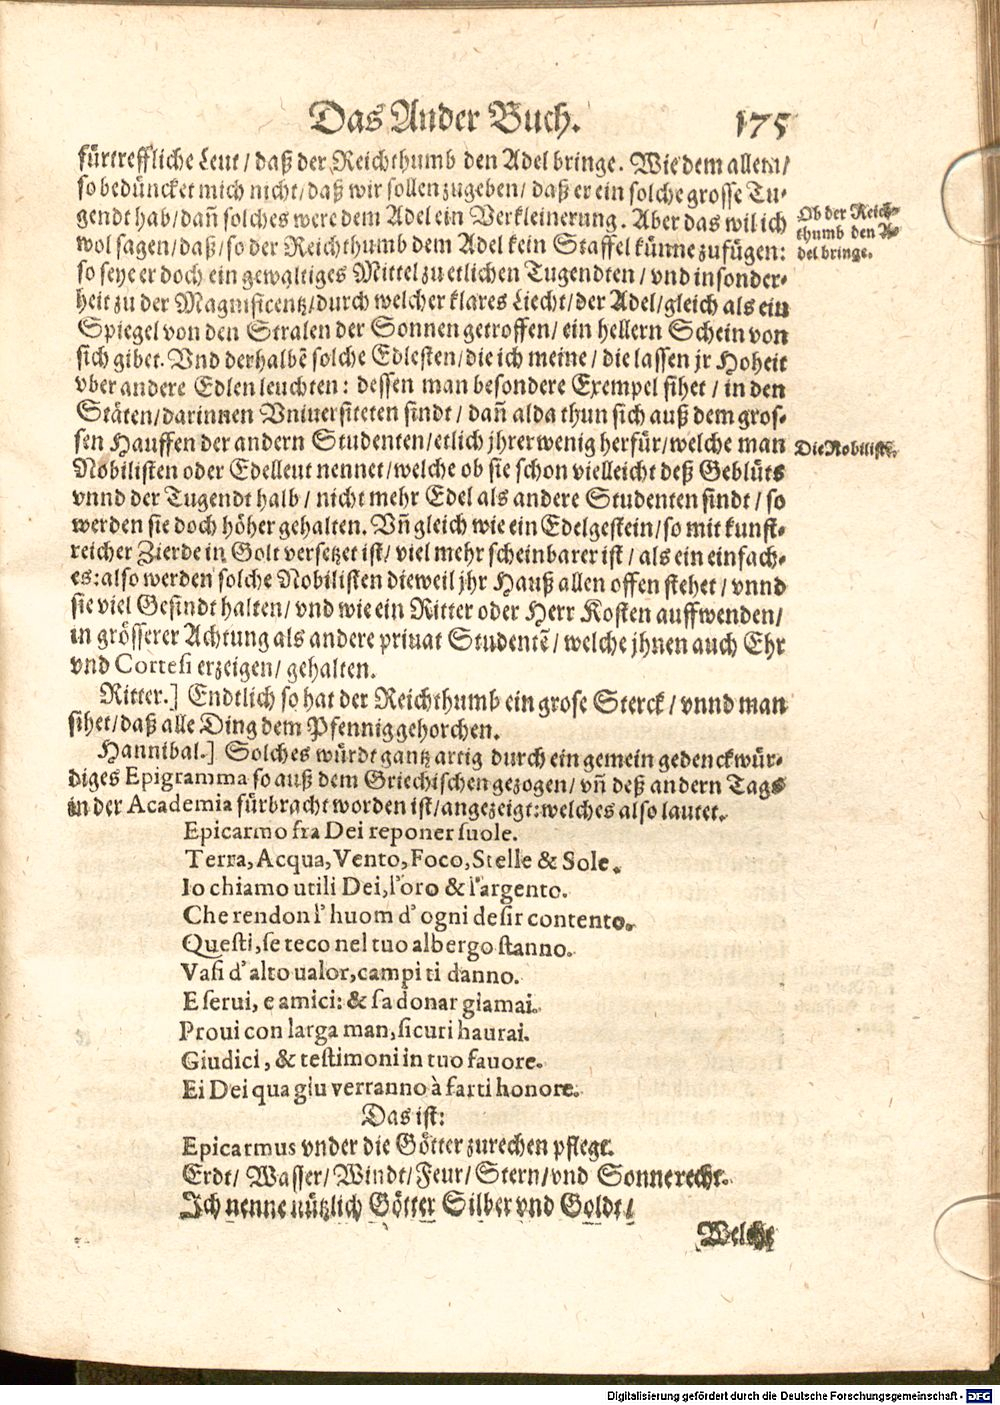 Das Ander Buch. 175
fürtreffliche Leut / daß der Reichthumb den Adel bringe. Wie dem allem /
so bedüncket mich nicht / daß wir sollen zugeben / daß er ein solche grosse Tu-
gendt hab / dañ solches were dem Adel ein Verkleinerung. Aber das wil ich
wol sagen / daß / so der Reichthumb dem Adel kein Staffel künne zufügen:
so seye er doch ein gewaltiges Mittel zu etlichen Tugendten / vnd insonder-
heit zu der Magnificentz / durch welcher klares Liecht / der Adel / gleich als ein
Spiegel von den Stralen der Sonnen getroffen / ein hellern Schein von
sich gibet. Vnd derhalbē solche Edlesten / die ich meine / die lassen jr Hoheit
vber andere Edlen leuchten: dessen man besondere Exempel sihet / in den
Stäten / darinnen Vniuersiteten sindt / dañ alda thun sich auß dem gros-
sen Hauffen der andern Studenten / etlich jhrer wenig herfür / welche man
Nobilisten oder Edelleut nennet / welche ob sie schon vielleicht deß Geblüts
vnnd der Tugendt halb / nicht mehr Edel als andere Studenten sindt / so
werden sie doch höher gehalten. Vñ gleich wie ein Edelgestein / so mit kunst-
reicher Zierde in Golt versetzet ist / viel mehr scheinbarer ist / als ein einfach-
es: also werden solche Nobilisten dieweil jhr Hauß allen offen stehet / vnnd
sie viel Gesindt halten / vnd wie ein Ritter oder Herr Kosten auffwenden /
in grösserer Achtung als andere priuat Studentē / welche jhnen auch Ehr
vnd Cortesi erzeigen / gehalten.
Ritter.] Endtlich so hat der Reichthumb ein grose Sterck / vnnd man
sihet / daß alle Ding dem Pfennig gehorchen.
Hannibal.] Solches würdt gantz artig durch ein gemein gedenckwür-
diges Epigramma so auß dem Griechischen gezogen / vñ deß andern Tags
in der Academia fürbracht worden ist / angezeigt: welches also lautet.
Epicarmo fra Dei reponer suole.
Terra, Acqua, Vento, Foco, Stelle & Sole.
Io chiamo utili Dei, l'oro & l'argento.
Che rendon l'huom d'ogni desir contento.
Questi, se teco nel tuo albergo stanno.
Vasi d'alto ualor, campi ti danno.
E serui, e amici: & sa donar giamai.
Proui con larga man, sicuri haurai.
Giudici, & testimoni in tuo fauore.
Ei Dei qua giu verranno à farti honore.
Das ist:
Epicarmus vnder die Götter zurechen pflegt.
Erdt / Wasser / Windt / Feur / Stern / vnd Sonne recht.
Ich nenne nützlich Götter Silber vnd Goldt /
Welche
Ob der Reich-
thumb den A-
del bringe.
Die Nobilisti.
Digitalisierung gefördert durch die Deutsche Forschungsgemeinschaft - DFG